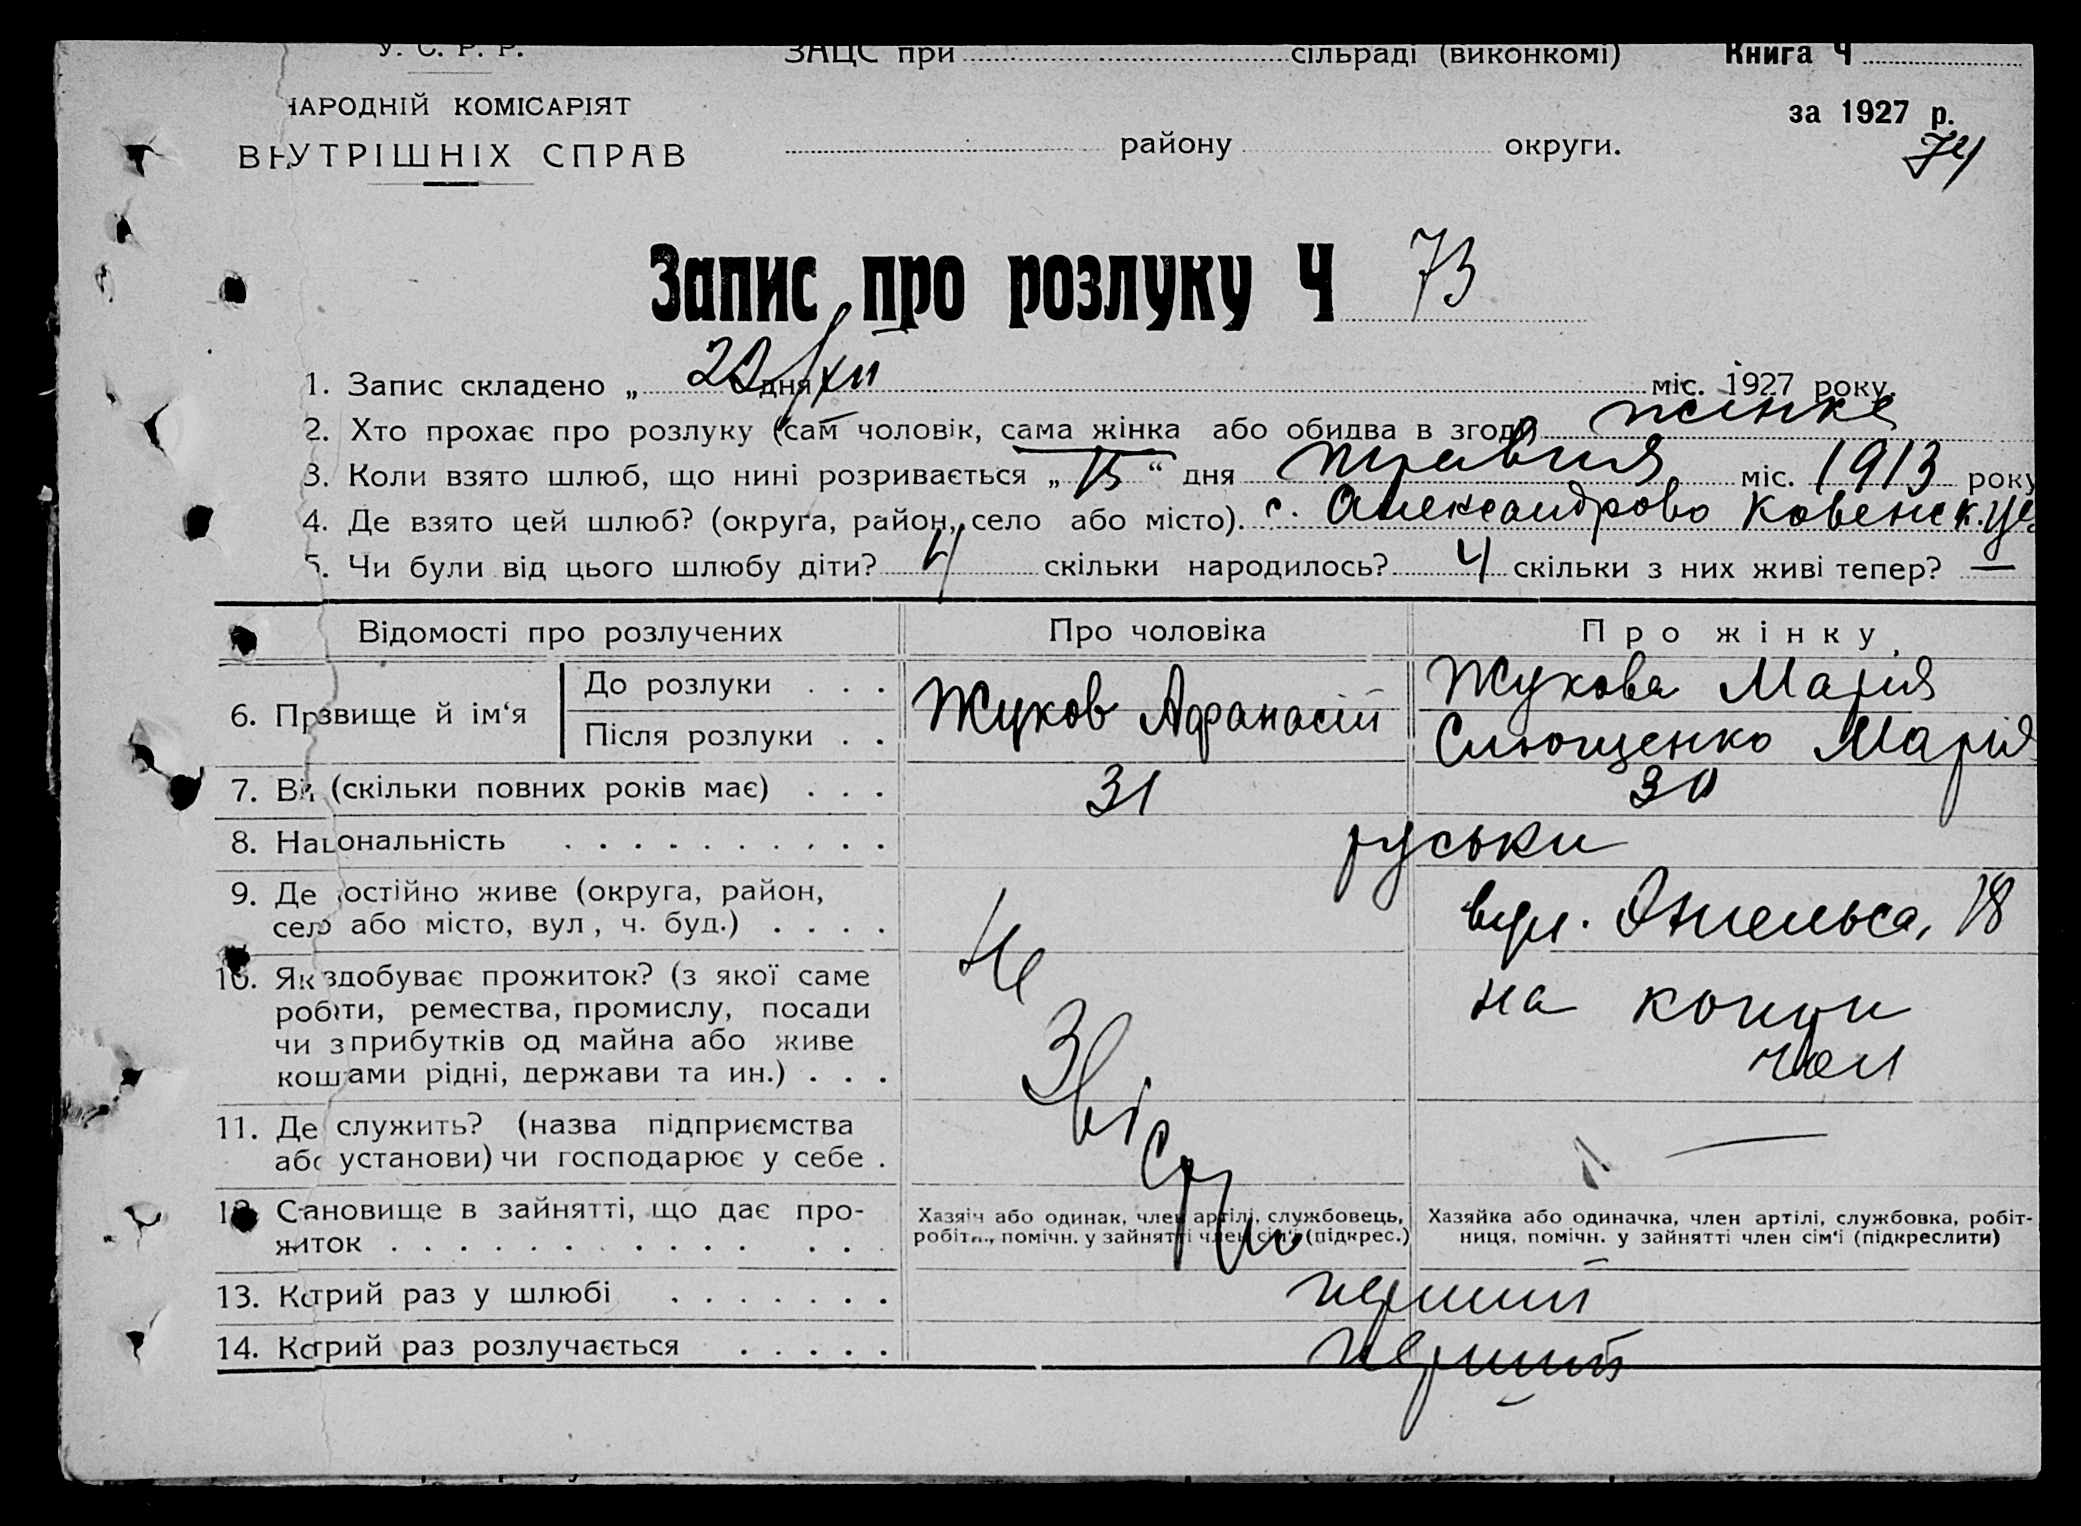 У. С. Р. Р. ЗАЦС при сільраді (виконкомі) Книга Ч
НАРОДНІЙ КОМІСАРІЯТ за 1927 р.
ВНУТРІШНІХ СПРАВ району округи. 74
Запис про розлуку Ч 73
1. Запис складено „ 22 дня/XII міс. 1927 року.
2. Хто прохає про розлуку (сам чоловік, сама жінка або обидва в згоді) жінка
3. Коли взято шлюб, що нині розривається „ 15 “ дня травня міс. 1913 року
4. Де взято цей шлюб? (округа, район, село або місто). с. Александрово Ковенск.
5. Чи були від цього шлюбу діти? 4 скільки народилось? 4 скільки з них живі тепер? —
Відомості про розлучених Про чоловіка Про жінку
6. Прізвище й ім‘я До розлуки . . . Жуков Афанасій Жукова Марія
Після розлуки . . Марія
7. Вік (скільки повних років має) . . . 31 30
8. Національність . . . . . . . . . . руськи
9. Де постійно живе (округа, район,
село або місто, вул , ч. буд.) . . . . вул. Енгельса, 18
10. Як здобуває прожиток? (з якої саме
робіти, ремества, промислу, посади на
чи з прибутків од майна або живе
коштами рідні, держави та ин.) . . .
Не звістно
11. Де служить? (назва підприємства
або установи) чи господарює у себе . —
12. Становище в зайнятті, що дає про- Хазяїн або одинак, член артілі, службовець, Хазяйка або одиначка, член артілі, службовка, робіт-
житок . . . . . . . . . . . . робітн., помічн. у зайнятті член сім‘ї (підкрес.) ниця, помічн. у зайнятті член сім‘ї (підкреслити)
13. Котрий раз у шлюбі . . . . . . . перший
14. Котрий раз розлучається . . . . . перший